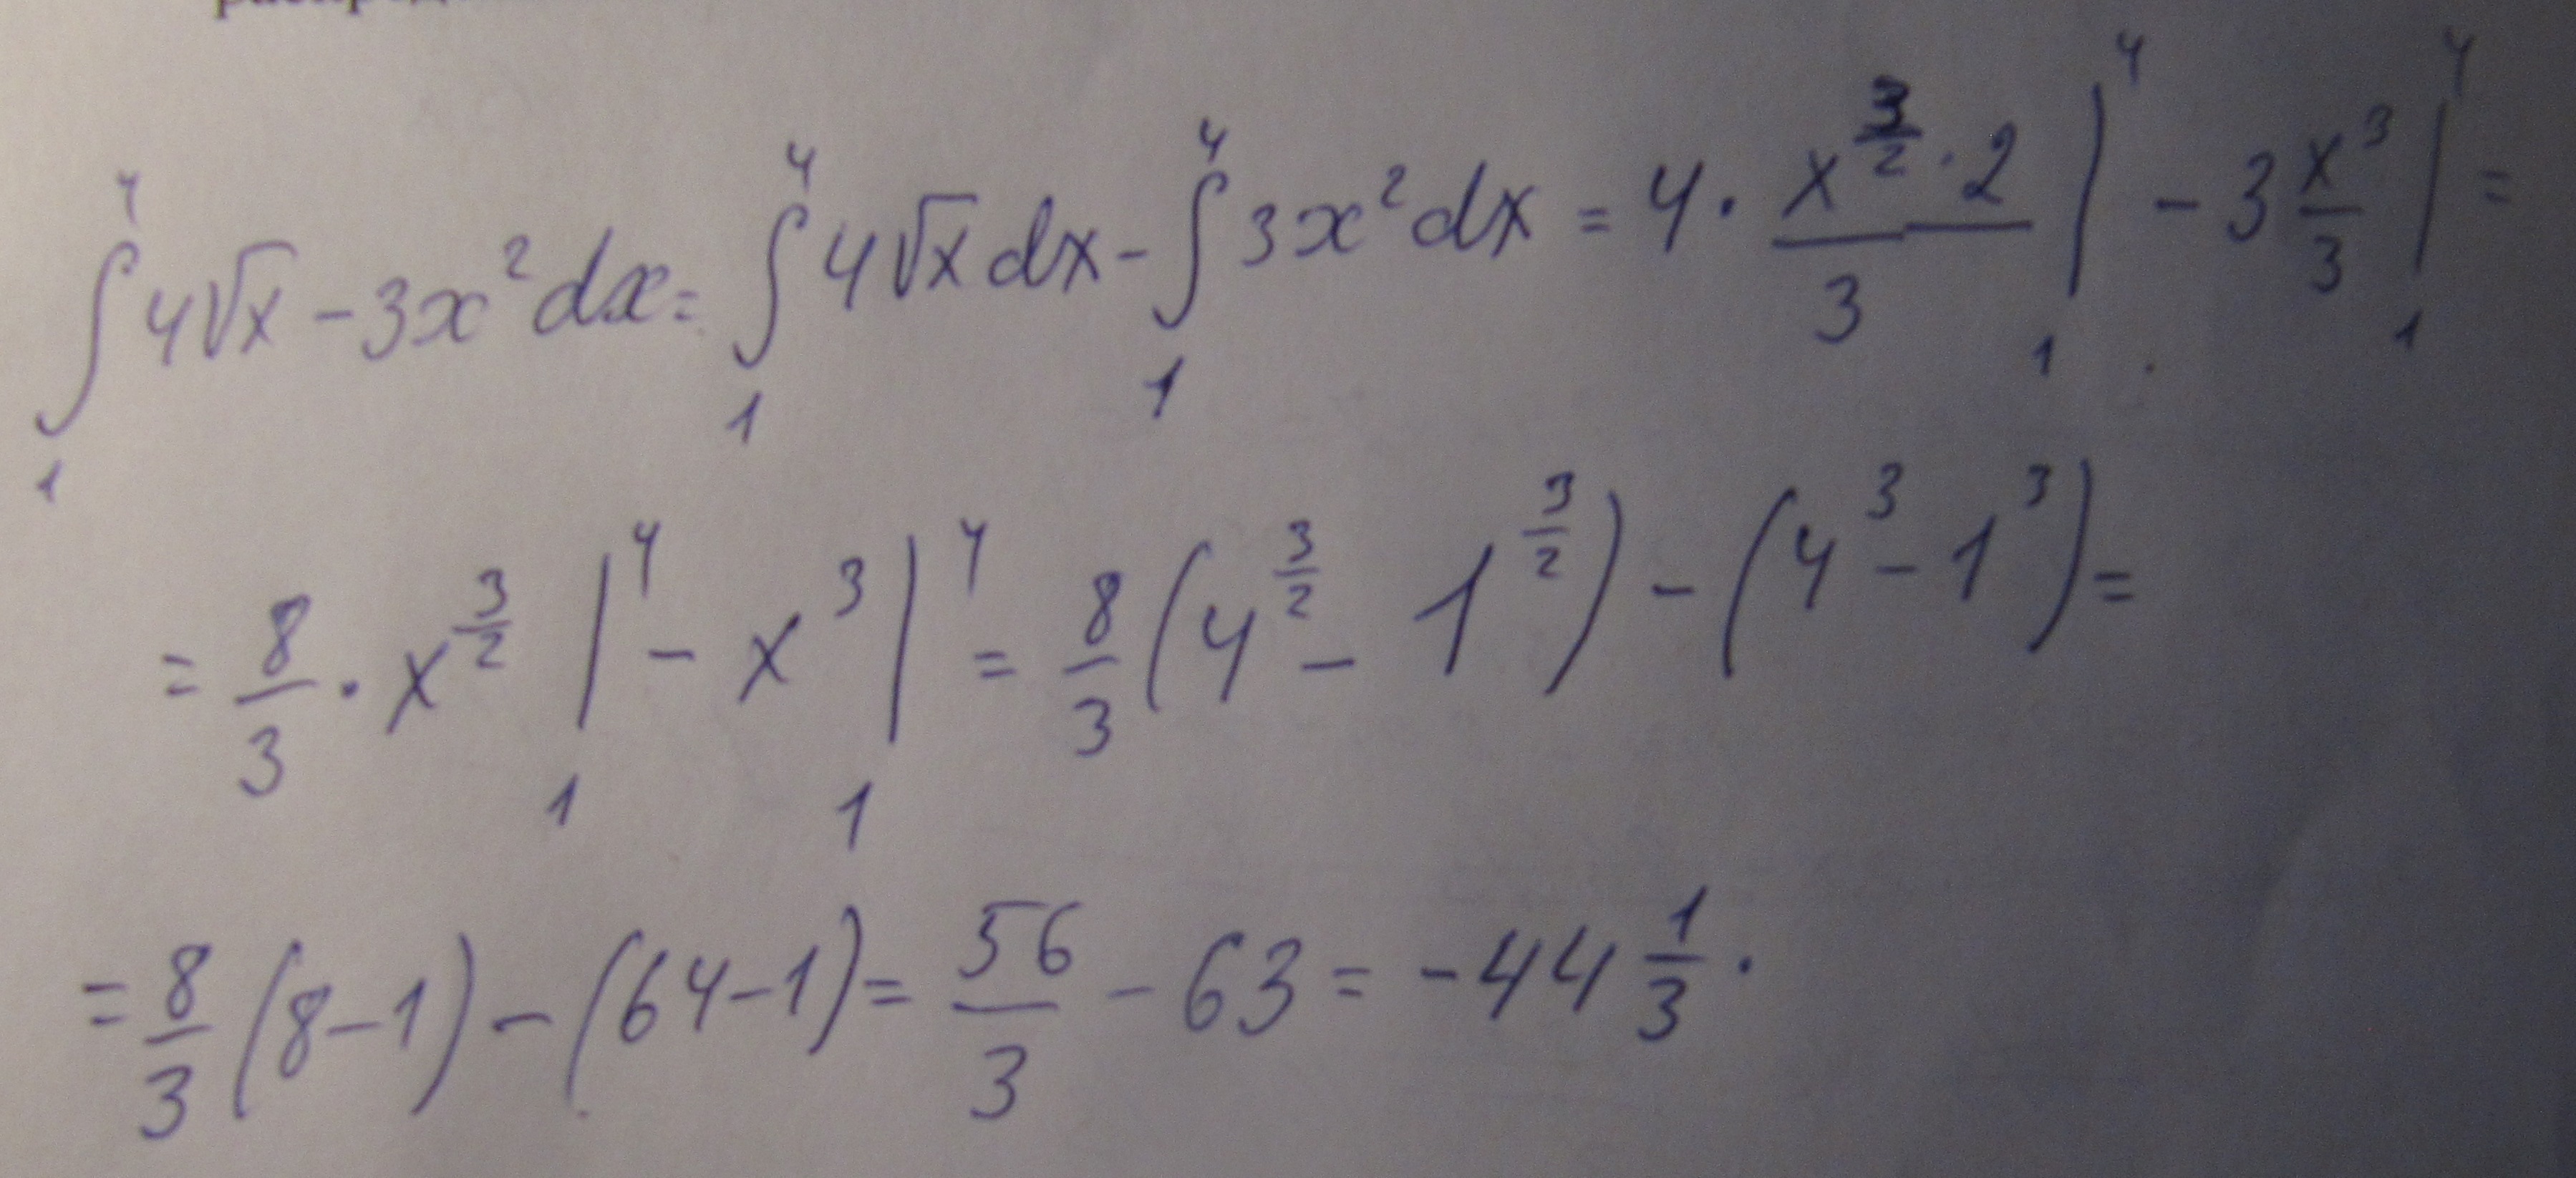 ∫₁⁴ 4√x - 3x² dx = ∫₁⁴ 4√x dx - ∫₁⁴ 3x² dx = 4 · (x^(3/2) · 2)/3 |₁⁴ - 3 x³/3 |₁⁴ =
= 8/3 · x^(3/2) |₁⁴ - x³ |₁⁴ = 8/3 (4^(3/2) - 1^(3/2)) - (4³ - 1³) =
= 8/3 (8 - 1) - (64 - 1) = 56/3 - 63 = -44 1/3.